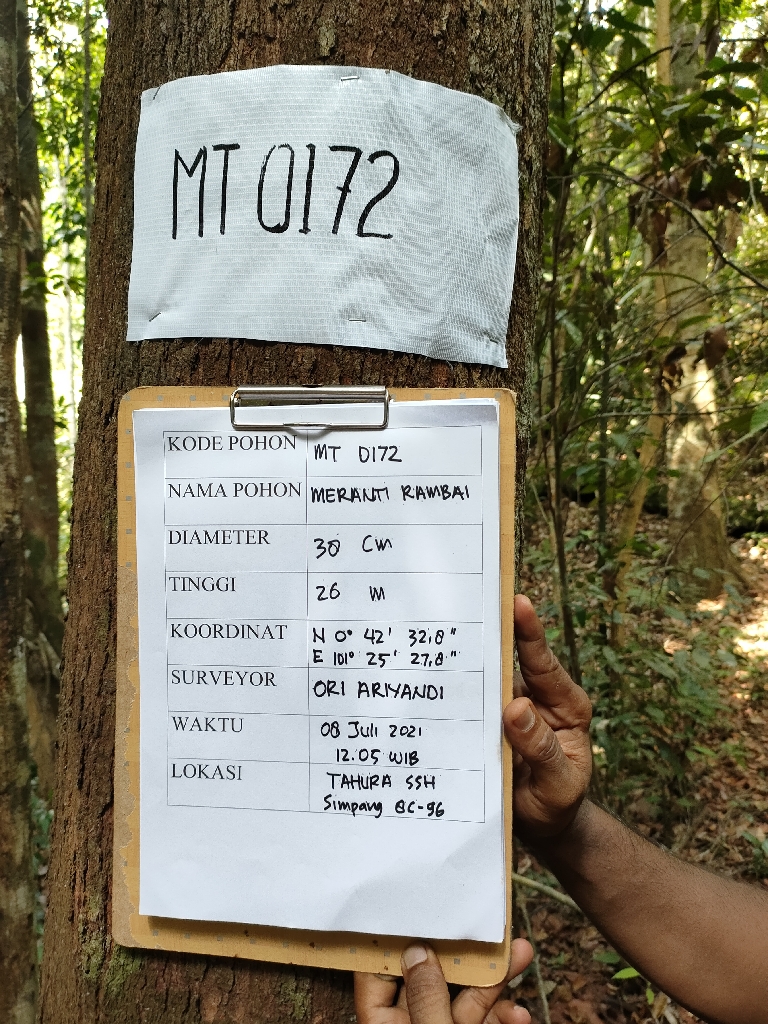 MT 0172
KODE POHON MT 0172
NAMA POHON MERANTI RAMBAI
DIAMETER 30 Cm
TINGGI 26 m
KOORDINAT N 0° 42' 32,8"
E 101° 25' 27,8"
SURVEYOR ORI ARIYANDI
WAKTU 08 Juli 2021
12.05 WIB
LOKASI TAHURA SSH
Simpang BC-96